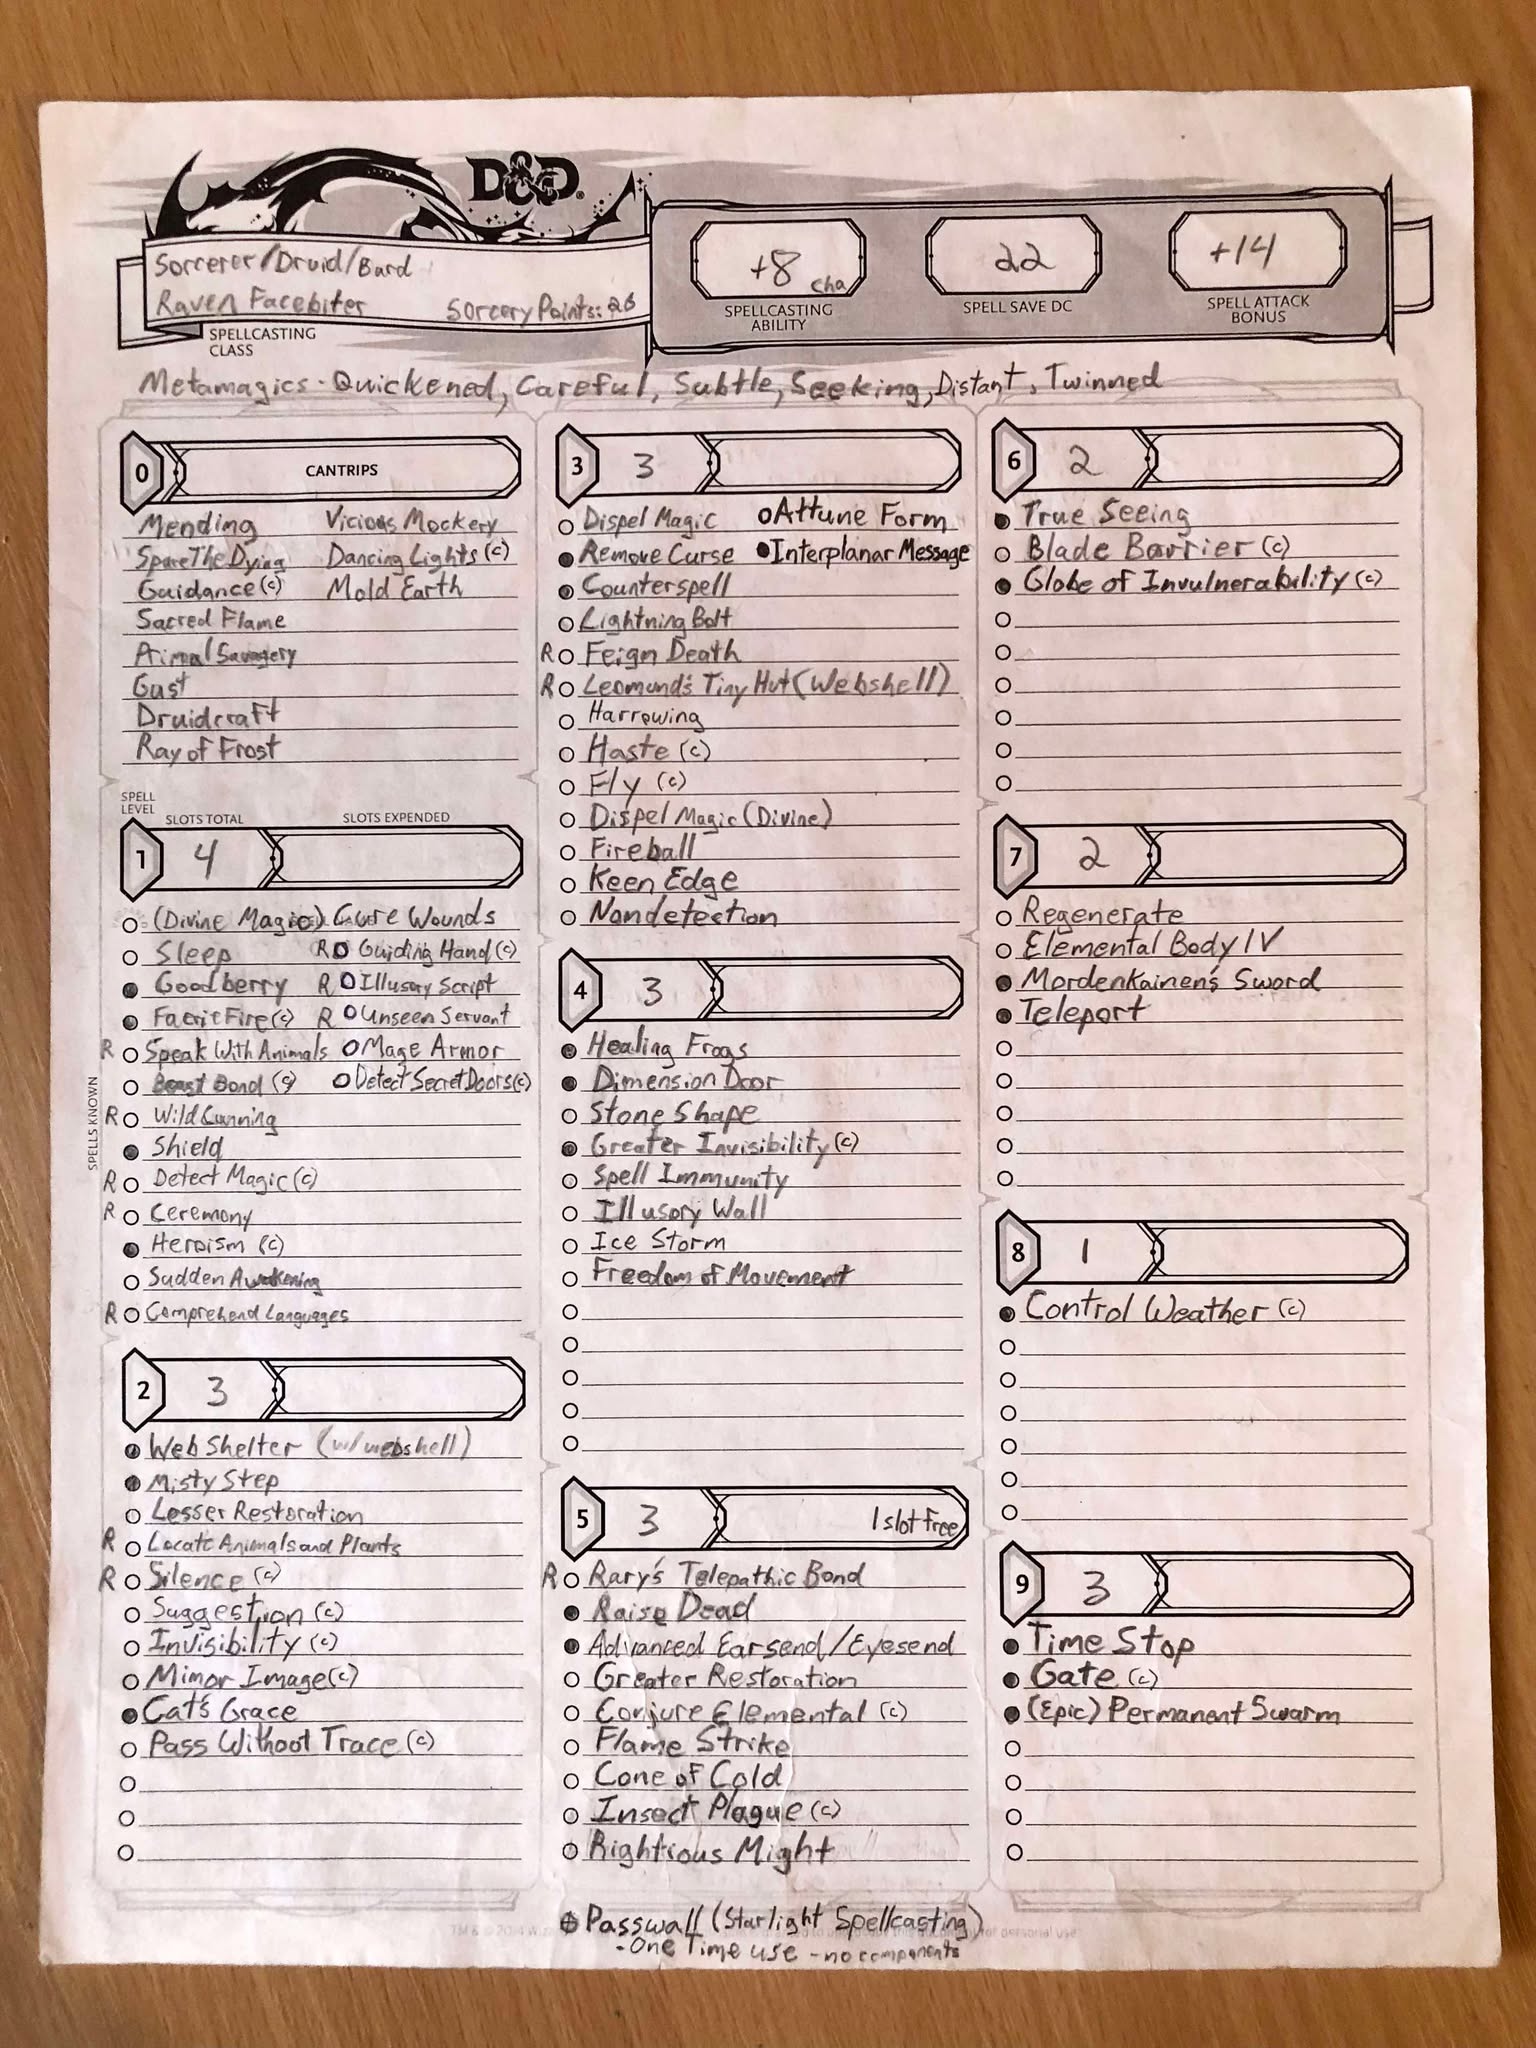 D&D®
Sorcerer/Druid/Bard
Raven Facebiter Sorcery Points: 26
SPELLCASTING CLASS
+8 Cha
SPELLCASTING ABILITY
22
SPELL SAVE DC
+14
SPELL ATTACK BONUS
Metamagics - Quickened, Careful, Subtle, Seeking, Distant, Twinned
0 CANTRIPS
Mending Vicious Mockery
Spare The Dying Dancing Lights (c)
Guidance (c) Mold Earth
Sacred Flame
Animal Savagery
Gust
Druidcraft
Ray of Frost
SPELL LEVEL SLOTS TOTAL SLOTS EXPENDED
1 4
SPELLS KNOWN
(Divine Magic) Cure Wounds
Sleep R Guiding Hand (c)
Goodberry R Illusory Script
Faerie Fire (c) R Unseen Servant
R Speak With Animals Mage Armor
Beast Bond (c) Detect Secret Doors (c)
R Wild Cunning
Shield
R Detect Magic (c)
R Ceremony
Heroism (c)
Sudden Awakening
R Comprehend Languages
2 3
Web Shelter (w/webshell)
Misty Step
Lesser Restoration
R Locate Animals and Plants
R Silence (c)
Suggestion (c)
Invisibility (c)
Mimor Image (c)
Cat's Grace
Pass Without Trace (c)
3 3
Dispel Magic Attune Form
Remove Curse Interplanar Message
Counterspell
Lightning Bolt
R Feign Death
R Leomund's Tiny Hut (Webshell)
Harrowing
Haste (c)
Fly (c)
Dispel Magic (Divine)
Fireball
Keen Edge
Nondetection
4 3
Healing Frogs
Dimension Door
Stone Shape
Greater Invisibility (c)
Spell Immunity
Illusory Wall
Ice Storm
Freedom of Movement
5 3 1 slot free
R Rary's Telepathic Bond
Raise Dead
Advanced Earsend/Eyesend
Greater Restoration
Conjure Elemental (c)
Flame Strike
Cone of Cold
Insect Plague (c)
Rightious Might
Passwall (Starlight Spellcasting)
- One Time use - no components
6 2
True Seeing
Blade Barrier (c)
Globe of Invulnerability (c)
7 2
Regenerate
Elemental Body IV
Mordenkainen's Sword
Teleport
8 1
Control Weather (c)
9 3
Time Stop
Gate (c)
(Epic) Permanent Swarm